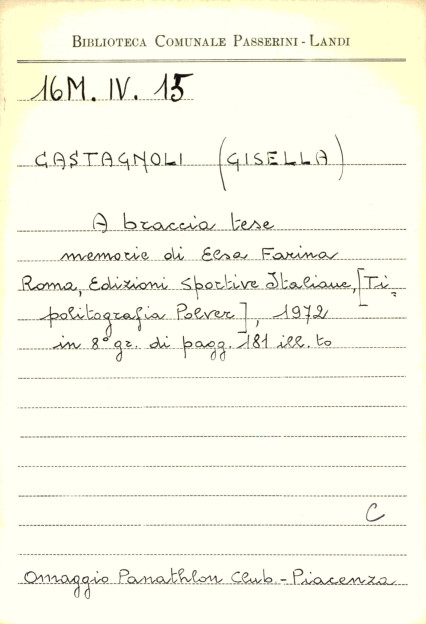 BIBLIOTECA COMUNALE PASSERINI - LANDI
16M. IV. 15
CASTAGNOLI (GISELLA)
A braccia tese
memorie di Elsa Farina
Roma, Edizioni Sportive Italiane, [Ti=
politografia Polver], 1972
in 8° gr. di pagg. 181 ill. to
C
Omaggio Panathlon Club. - Piacenza